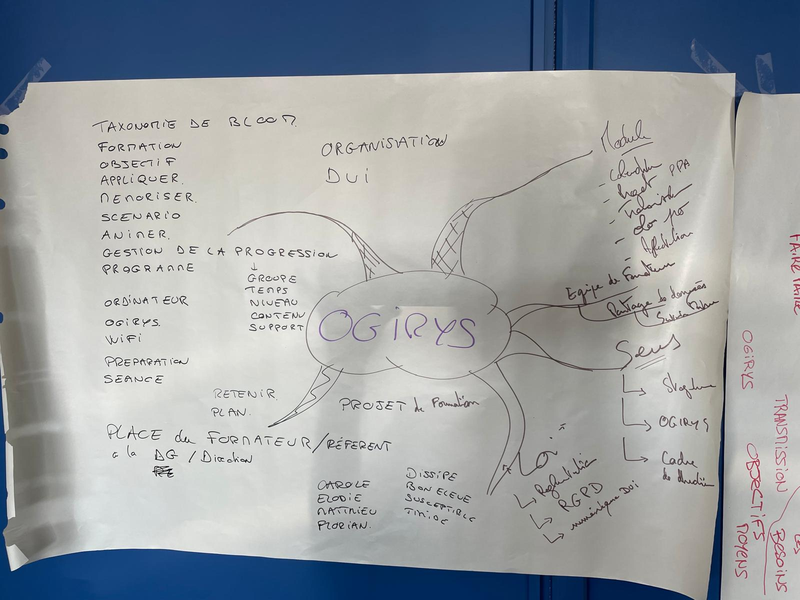 TAXONOMIE DE BLOOM
FORMATION
OBJECTIF
APPLIQUER
MEMORISER
SCENARIO
ANIMER
GESTION DE LA PROGRESSION
PROGRAMME
↓
GROUPE
TEMPS
NIVEAU
CONTENU
SUPPORT
ORDINATEUR
OGIRYS
WIFI
PREPARATION
SEANCE
RETENIR
PLAN
PLACE du FORMATEUR/RÉFÉRENT
à la DG / Direction
ORGANISATION
DUI
OGIRYS
PROJET de Formation
CAROLE DISSIPE
ELODIE BON ELEVE
MATHIEU SUSCEPTIBLE
FLORIAN TIMIDE
Module
PPA
Equipe de Formateur
Partage de données
Sens
→ OGIRYS
→ Cadre de direction
Loi
→ RGPD
→ numérique DUI
FAIRE FAIRE
OGIRYS
TRANSMISSION
OBJECTIFS
LES
BESOINS
MOYENS